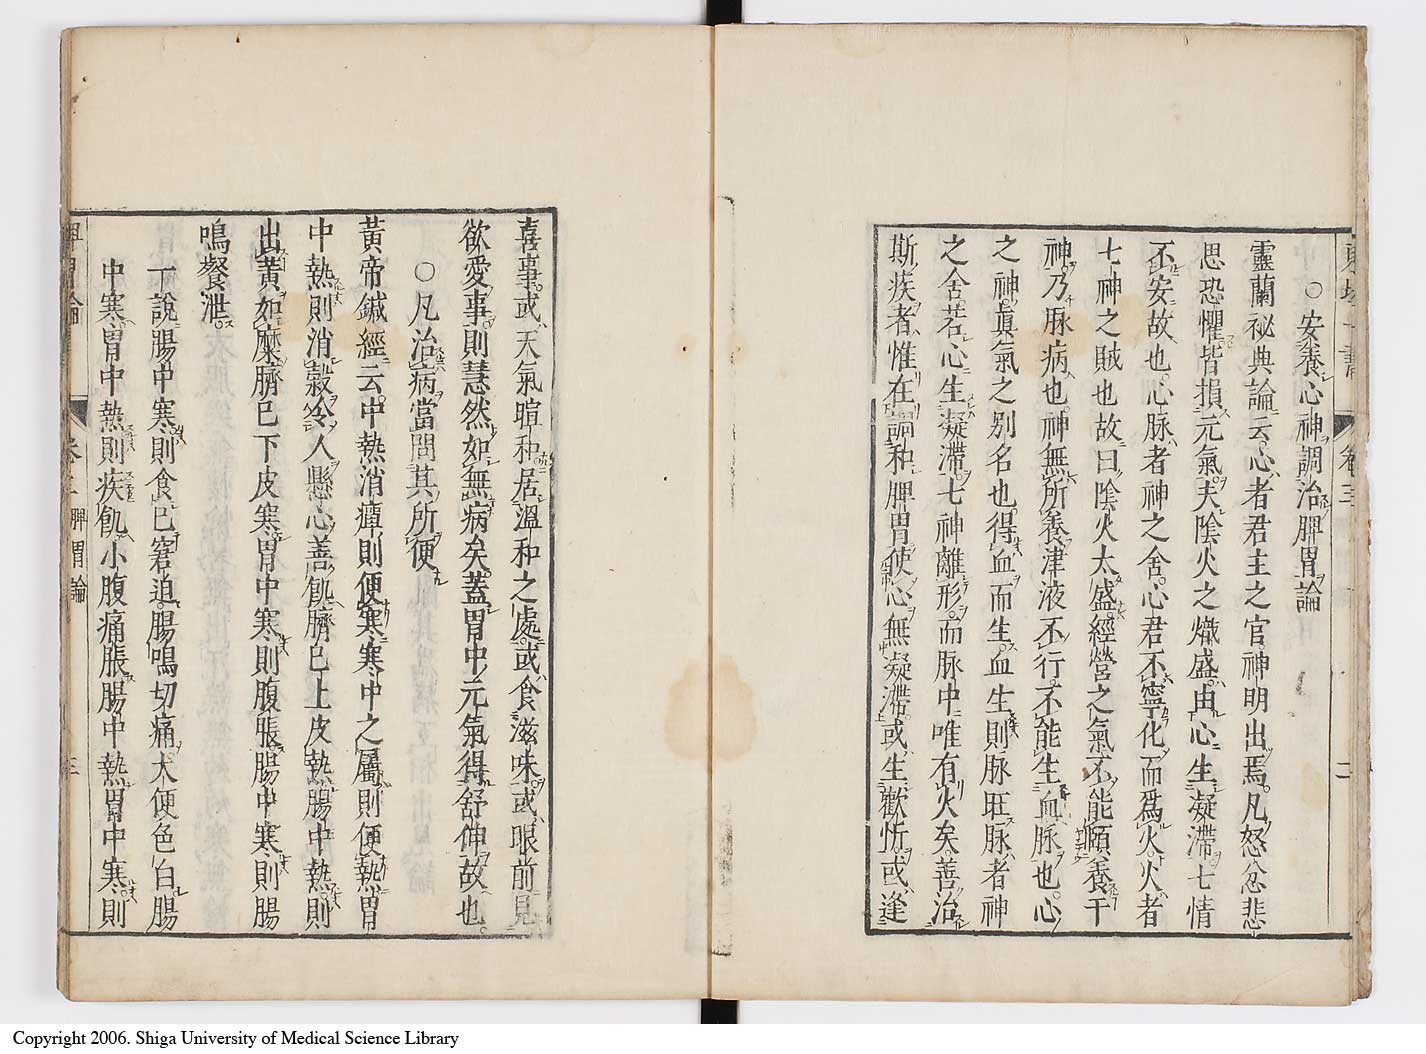 ○安養心神調治脾胃論
靈蘭祕典論云心者君主之官神明出焉凡怒忿悲
思恐懼皆損元氣夫陰火之熾盛由心生凝滯七情
不安故也心脉者神之舍心君不寧化而爲火火者
七神之賊也故曰陰火太盛經營之氣不能頤養于
神乃脉病也神無所養津液不行不能生血脉也心
之神眞氣之别名也得血而生血生則脉旺脉者神
之舍若心生凝滯七神離形而脉中唯有火矣善治
斯疾者惟在調和脾胃使心無凝滯或生歡忻或逢
喜事或天氣暄和居溫和之處或食滋味或眼前見
欲愛事則慧然如無病矣蓋胃中元氣得舒伸故也
○凡治病當問其所便
黃帝鍼經云中熱消癉則便寒寒中之屬則便熱胃
中熱則消榖令人懸心善飢臍已上皮熱腸中熱則
出黃如糜臍已下皮寒胃中寒則腹脹腸中寒則腸
鳴飱泄
一說腸中寒則食已窘迫腸鳴切痛大便色白腸
中寒胃中熱則疾飢小腹痛脹腸中熱胃中寒則
卷三 脾胃論
三
Copyright 2006. Shiga University of Medical Science Library